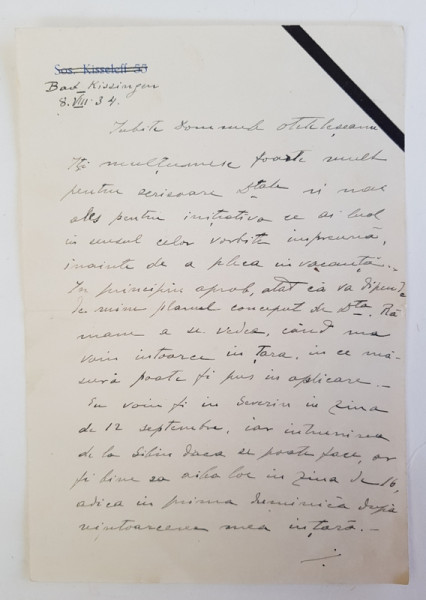 Șos. Kisseleff 55
Bad Kissingen
8.VIII.34.
Iubite Domnule Otetelișeanu
Îți mulțumesc foarte mult
pentru scrisoarea Dtale și mai
ales pentru inițiativa ce ai luat
în sensul celor vorbite împreună,
înainte de a pleca in vacanță..
In principiu aprob, atât că va depinde
de mine planul conceput de Dta. Ră-
mâne a se vedea, când mă
voiu intoarce în țara, in ce mă-
sură poate fi pus in aplicare.—
Eu voiu fi in Severin in ziua
de 12 septembre, iar intrunirea
de la Sibiu daca se poate face, ar
fi bine sa aiba loc in ziua de 16,
adica in prima duminică după
reintoarcerea mea in țară.—